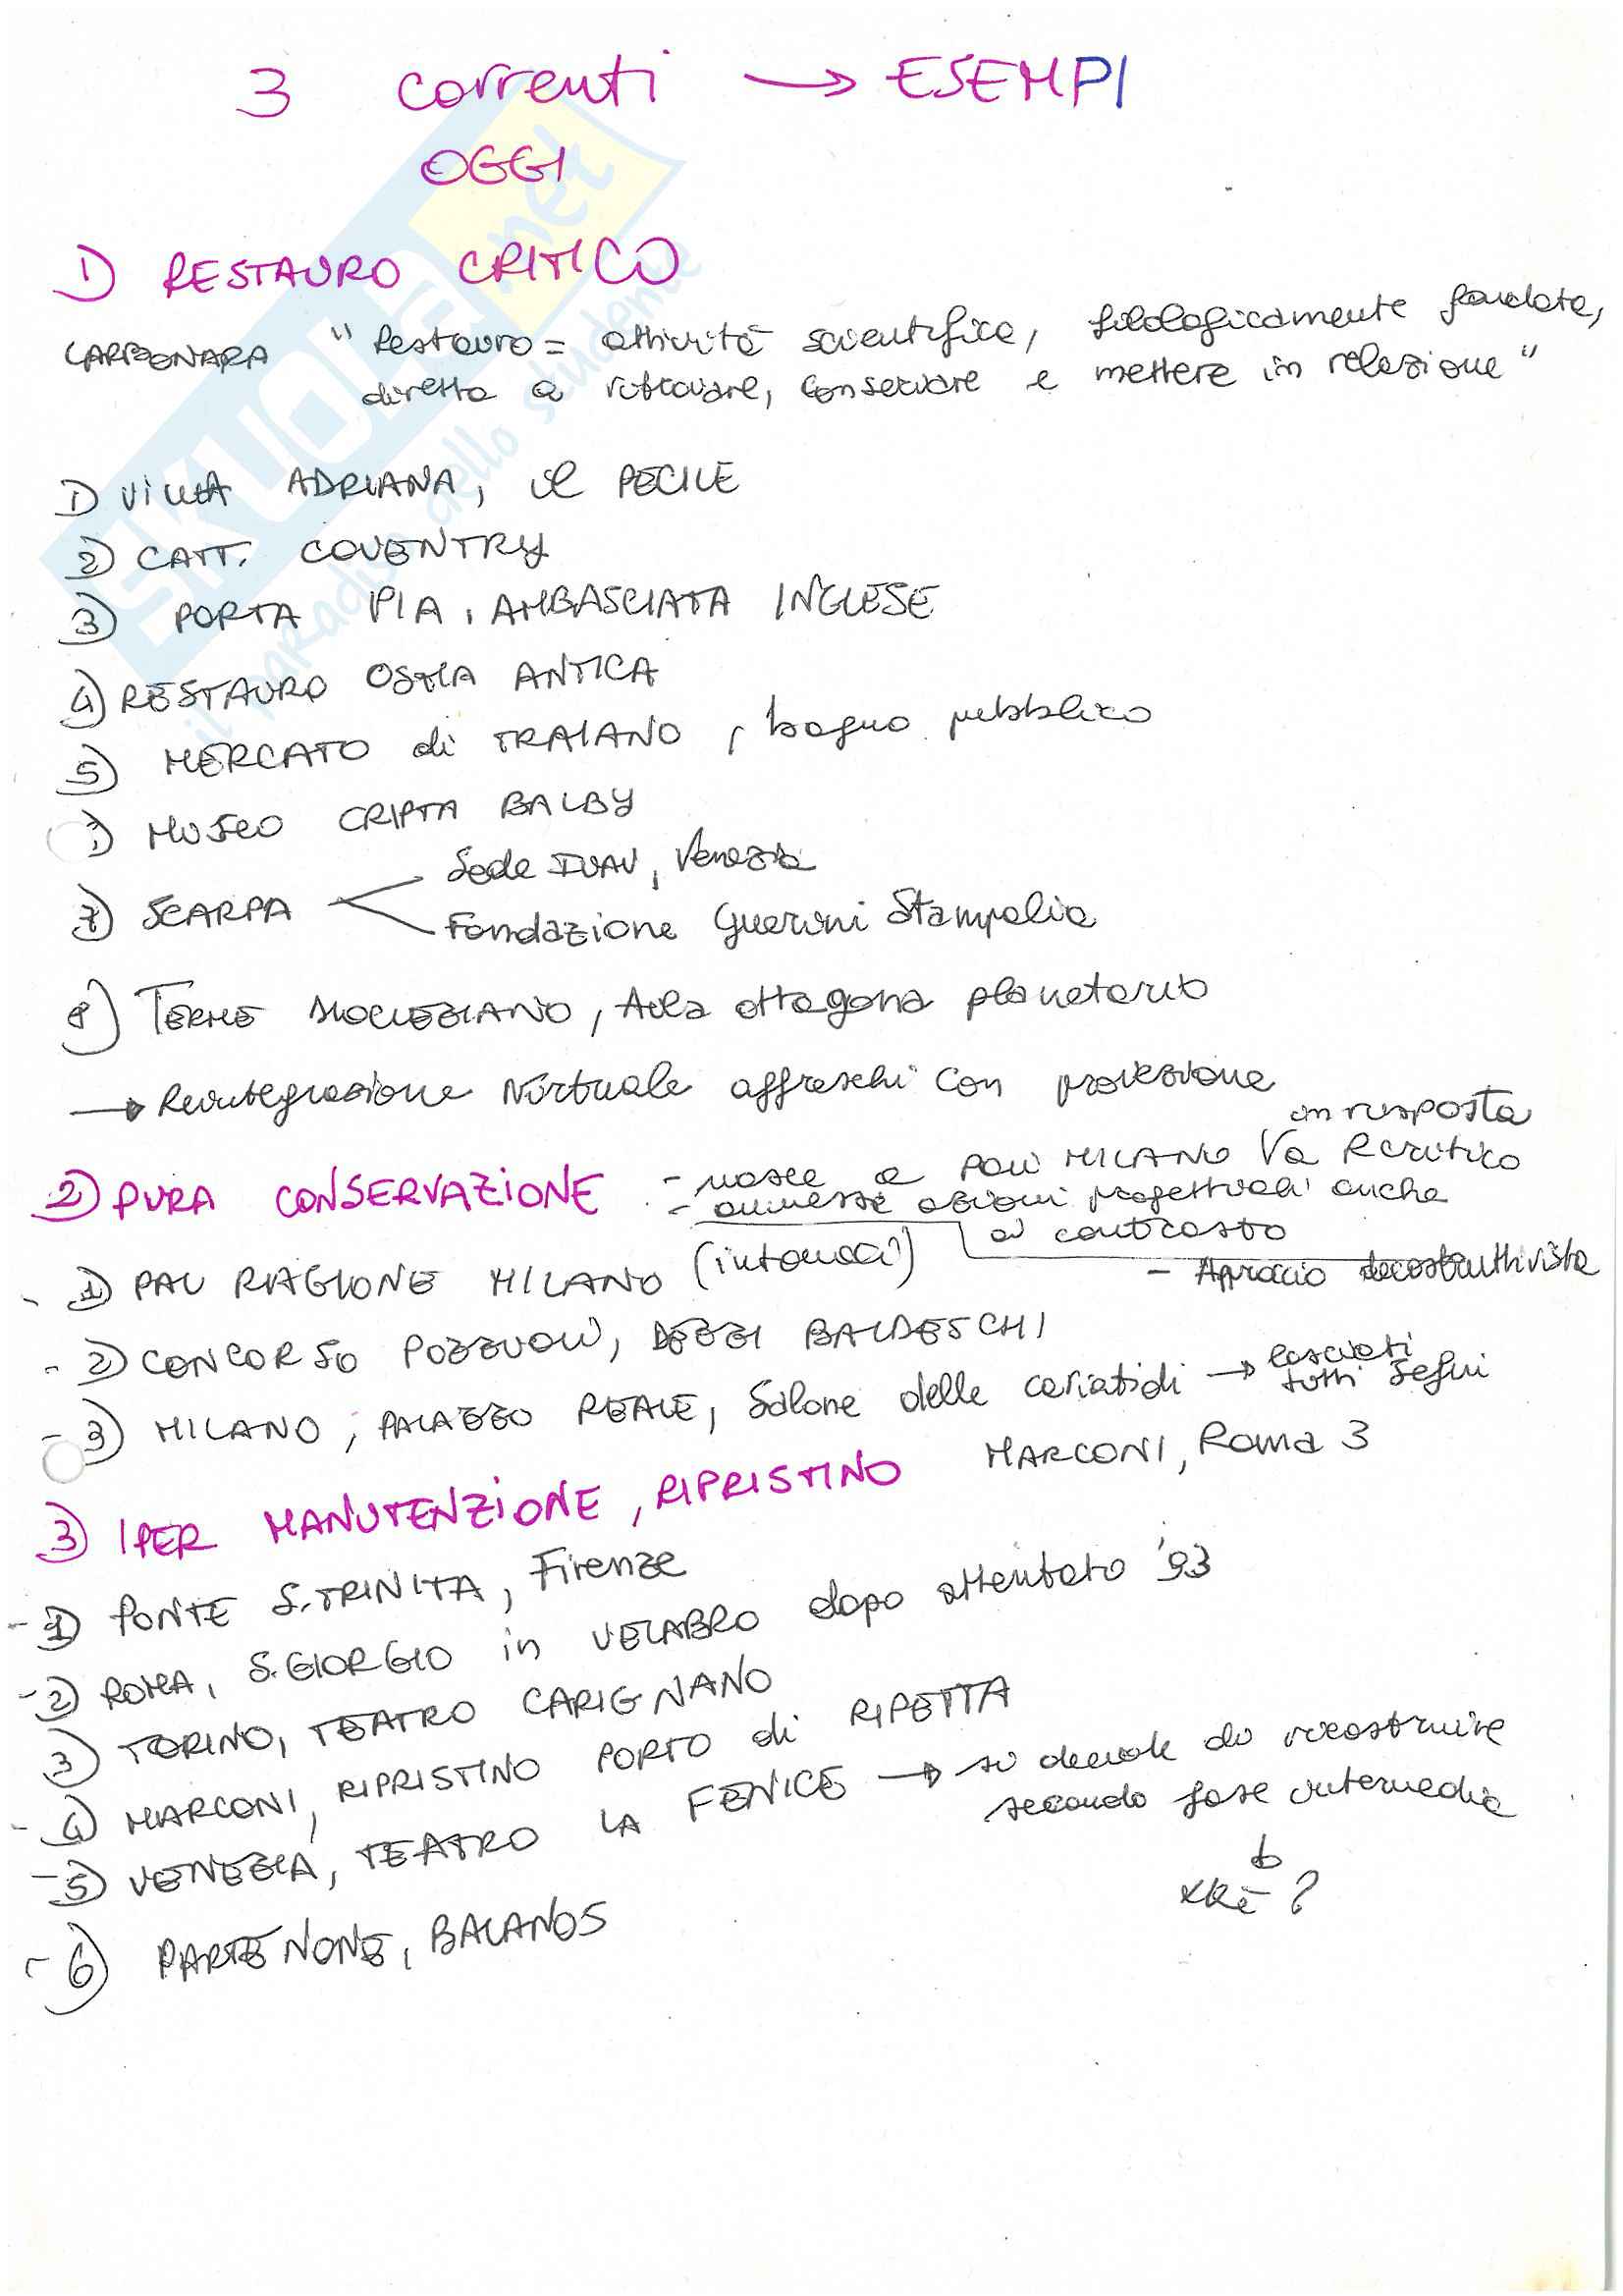 3 correnti → ESEMPI
OGGI
1) RESTAURO CRITICO
CARBONARA "Restauro = attività scientifica, filologicamente fondata,
diretta a ritrovare, conservare e mettere in relazione"
1) VILLA ADRIANA, il PECILE
2) CATT. COVENTRY
3) PORTA PIA, AMBASCIATA INGLESE
4) RESTAURO OSTIA ANTICA
5) MERCATO di TRAIANO, bagno pubblico
) MUSEO CRIPTA BALBY
7) SCARPA
Sede IUAV, Venezia
Fondazione Guerini Stampalia
8) TERME DIOCLEZIANO, Aula ottagona planetario
→ Reintegrazione Virtuale affreschi con proiezione
in risposta
2) PURA CONSERVAZIONE - nasce a POLI MILANO Va R critico
- ammesse azioni progettuali anche
a contrasto
- 1) PAL RAGIONE MILANO (intonaci)
- Aproccio decostruttivista
- 2) CONCORSO POZZUOLI, DEZZI BALDESCHI
- 3) MILANO, PALAZZO REALE, Salone delle cariatidi → lasciati
tutti segni
3) IPER MANUTENZIONE, RIPRISTINO MARCONI, Roma 3
- 1) PONTE S. TRINITA, Firenze
- 2) ROMA, S. GIORGIO in VELABRO dopo attentato '93
3) TORINO, TEATRO CARIGNANO
- 4) MARCONI, RIPRISTINO PORTO di RIPETTA
- 5) VENEZIA, TEATRO LA FENICE → si decide di ricostruire
secondo fase intermedia
xkè?
- 6) PARTENONE, BALANOS
SKUOLA.net
il paradiso dello studente